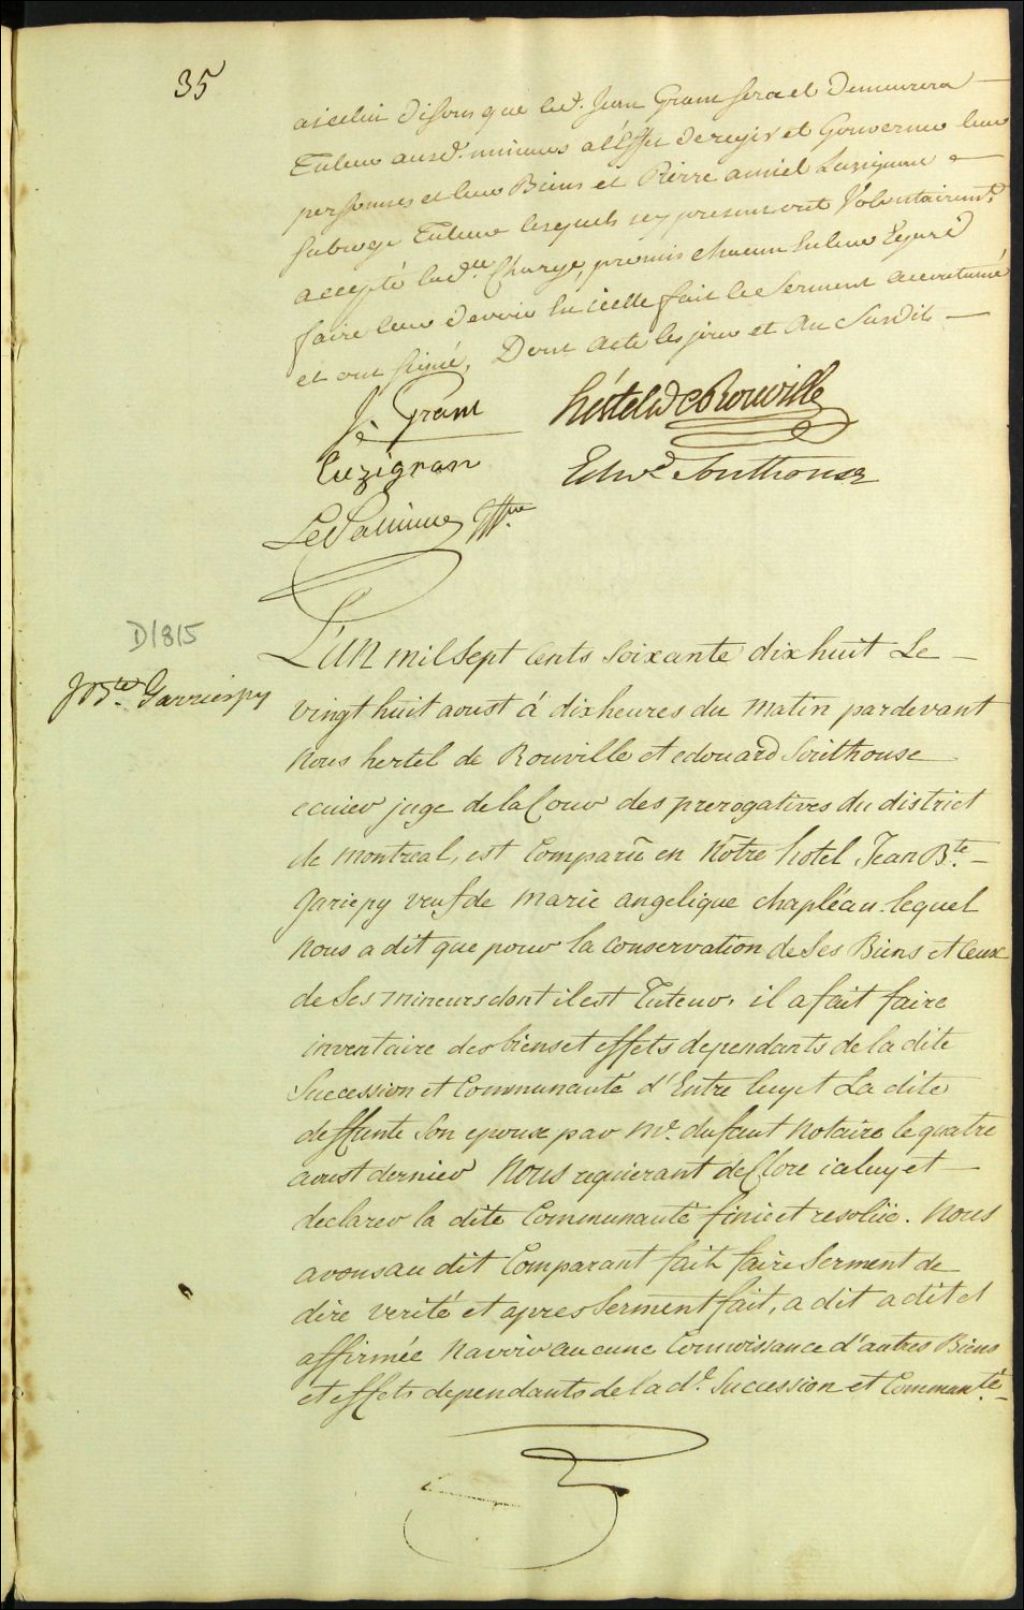 35
aicelui disons que led. Jean Grant sera et Demeurera
Tuteur auxd. mineurs a l'Effet de regir et Gouverner leur
personnes et leur Biens et Pierre amiel Luzignan
subrogé Tuteur lesquels icy presens ont Volontairemt.
accepté lad.te Charge, promis chacun En leur Egard
faire leur devoir En icelle fait le Serment accoutumé
et ont signé, Dont acte les jour et An Susdits
J. Grant
hertel de Rouville
Luzignan
Edwd. Southouse
D1815
L'an mil Sept Cents Soixante dix huit Le
JBte. Garriespy
vingt huit aoust á dix heures du matin pardevant
Nous hertel de Rouville et edouard Southouse
ecuier juge de la Cour des prerogatives du district
de montreal, est Comparû en Nôtre hotel Jean Bte.
Gariepy veuf de marie angelique chapléau. lequel
Nous a dit que pour la conservation de Ses Biens et Ceux
de Ses mineurs dont il est Tuteur, il a fait faire
inventaire des biens et effets dependants de la dite
Succession et Communauté d'Entre luy et La dite
deffunte Son epouse par Me. dufaut Notaire le quatre
aoust dernier Nous requierant de Clore icaluy et
declarer la dite Communauté finie et resolüe. Nous
avons au dit Comparant fait faire Serment de
dire verité et apres Serment fait, a dit a dit et
affirmée Navoir aucune Connoissance d'autres Biens
et effets dependants de la de. Sucession et Commanté